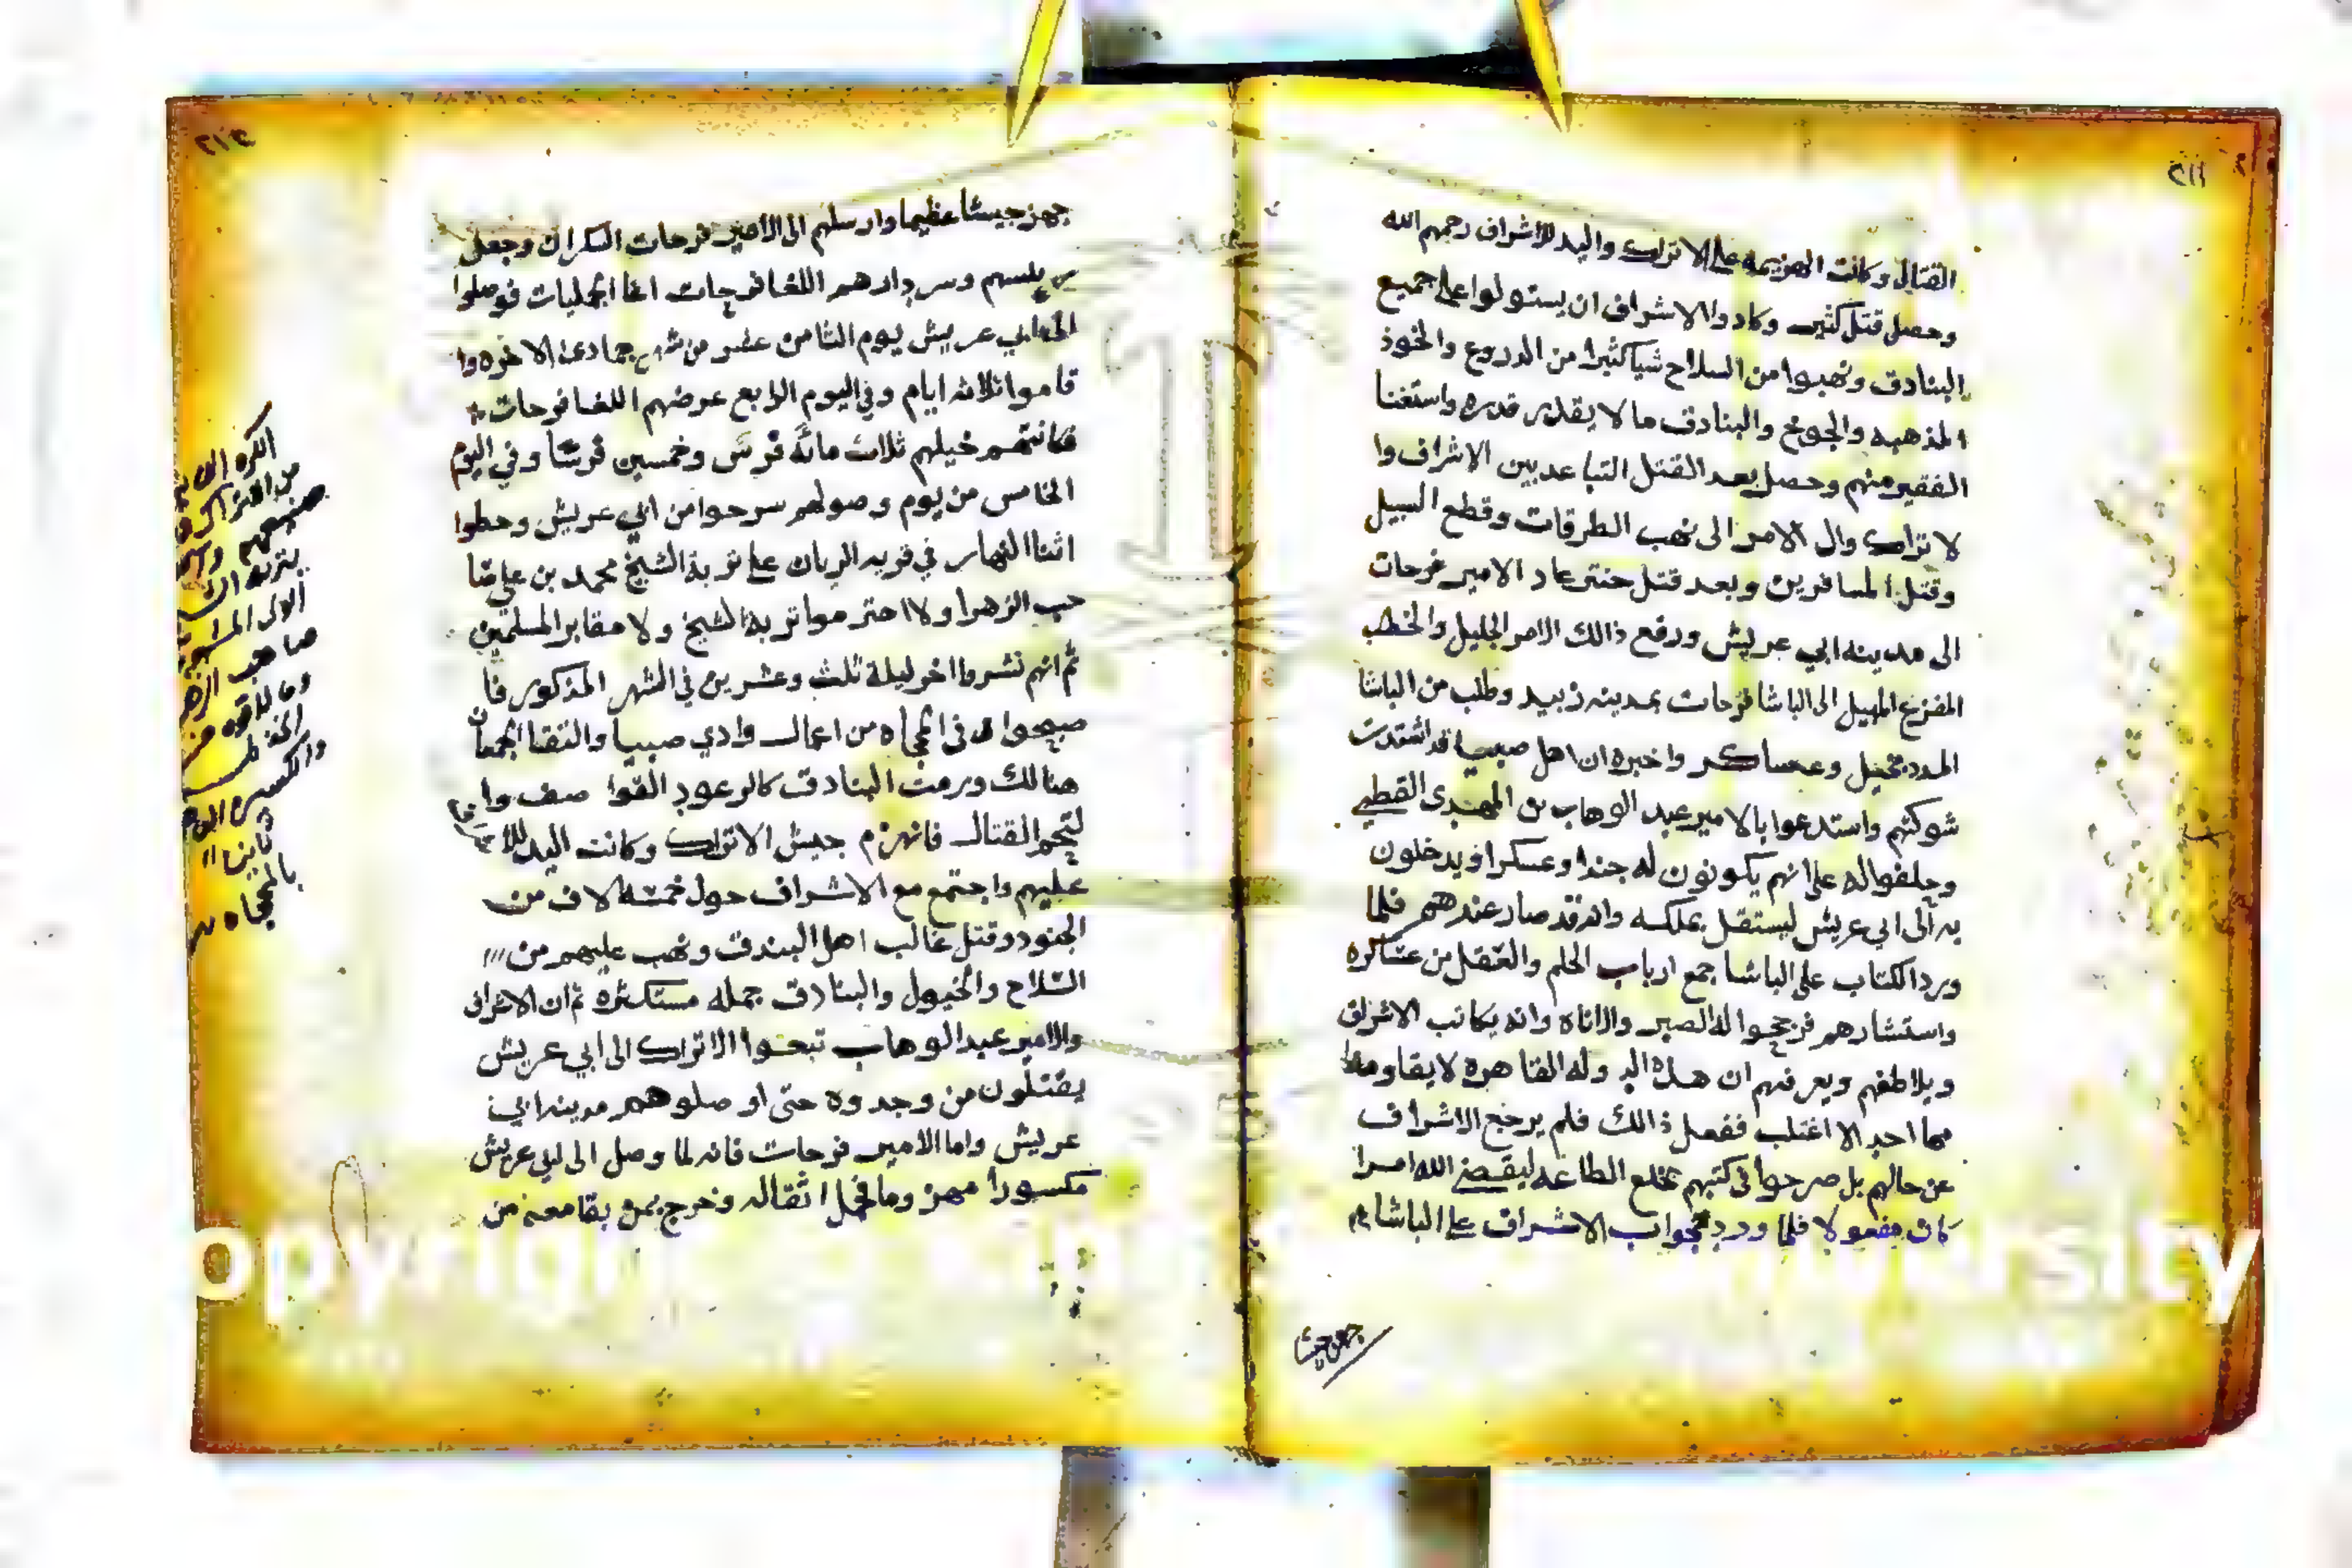 ٢١١
القتال وكانت الهزيمه على الاتراك واليد للاشراف رحمهم الله
وحصل قتل كثير وكادوا الاشراف ان يستولوا على جميع
البنادق ونهبوا من السلاح شيا كثيرا من الدروع والخوذ
المذهبه والجوخ والبنادق ما لا يقدر قدره واستغنا
الفقير منهم وحصل بعد القتل التباعد بين الاشراف وا
لاتراك وال الامر الى نهب الطرقات وقطع السبيل
وقتل المسافرين وبعد قتل عاد الامير فرحات
الى مدينه ابي عريش ورفع ذالك الامر الجليل والخطب
المفزع المهيل الى الباشا فرحات بمدينه زبيد وطلب من الباشا
المدد بخيل وعساكر واخبره ان اهل صبيا قد اشتدت
شوكتهم واستدعوا بالامير عبد الوهاب بن المهدي القطبي
وحلفوا له على انهم يكونون له جندا وعسكرا ويدخلون
به الى ابي عريش ليستقل بملكه وانه قد صار عندهم فلما
ورد الكتاب على الباشا جمع ارباب الحلم والعقل من عساكره
واستشارهم فرجحوا له الصبر والاناه وانه يكاتب الاشراف
ويلاطفهم ويعرفهم ان هذه الدوله القاهره لا يقاومها
احد الا اغتلب ففعل ذالك فلم يرجع الاشراف
عن حالهم بل صرحوا في كتبهم بخلع الطاعه ليقضي الله امرا
كان مفعولا فلما ورد جواب الاشراف على الباشا
جهز جيشا
٢١٢
جهز جيشا عظيما وارسلهم الى الامير فرحات السكران وجعل
رييسهم وسردارهم اللغا فرحات اغا الجمليات فوصلوا
الى ابي عريش يوم الثامن عشر من شهر جمادى الاخره وا
قاموا ثلاثه ايام وفي اليوم الرابع عرضهم اللغا فرحات
فكانت خيلهم ثلاث مائة فرس وخمسين فرسا وفي اليوم
الخامس من يوم وصولهم سرحوا من ابي عريش وحطوا
اثنا النهار في قريه الريان على تربة الشيخ محمد بن علي صا
حب الزهرا ولا احترموا تربة الشيخ ولا مقابر المسلمين
ثم انهم نشروا اخر ليلة ثلث وعشرين في الشهر المذكور فا
صبحوا في المحباه من اعمال وادي صبيا والتقا الجمعان
هنالك ورمت البنادق كالرعود القوا صف وا
لتحم القتال فانهزم جيش الاتراك وكانت اليد
عليهم واجتمع مع الاشراف حول خمسه الاف من
الجنود وقتل غالب اهل البندق ونهب عليهم من
السلاح والخيول والبنادق جمله مستكثره ثم ان الاشراف
والامير عبد الوهاب تبعوا الاتراك الى ابي عريش
يقتلون من وجدوه حتى اوصلوهم مدينه ابي
عريش واما الامير فرحات فانه لما وصل الى ابي عريش
مكسورا جهز وما حمل اثقاله وخرج بمن بقا معه من
الكره
صنيعهم
بتربه
صاحب
وما لاقوه
والكسره
ثانيا